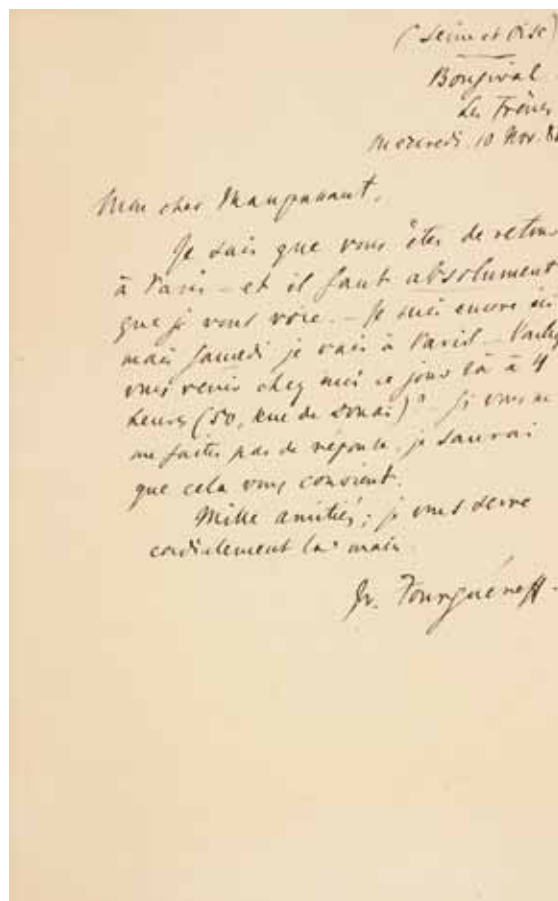 (Seine et Oise)
Bougival
Les Frênes
Mercredi 10 Nov. 80
Mon cher Maupassant,
Je sais que vous êtes de retour
à Paris – et il faut absolument
que je vous voie. – Je suis encore ici
mais Samedi je vais à Paris – Voulez
vous venir chez moi ce jour là à 4
heures (50, Rue de Douai)? Si vous ne
me faites pas de réponse, je saurai
que cela vous convient.
Mille amitiés; je vous serre
cordialement la main.
Iv. Tourguéneff –